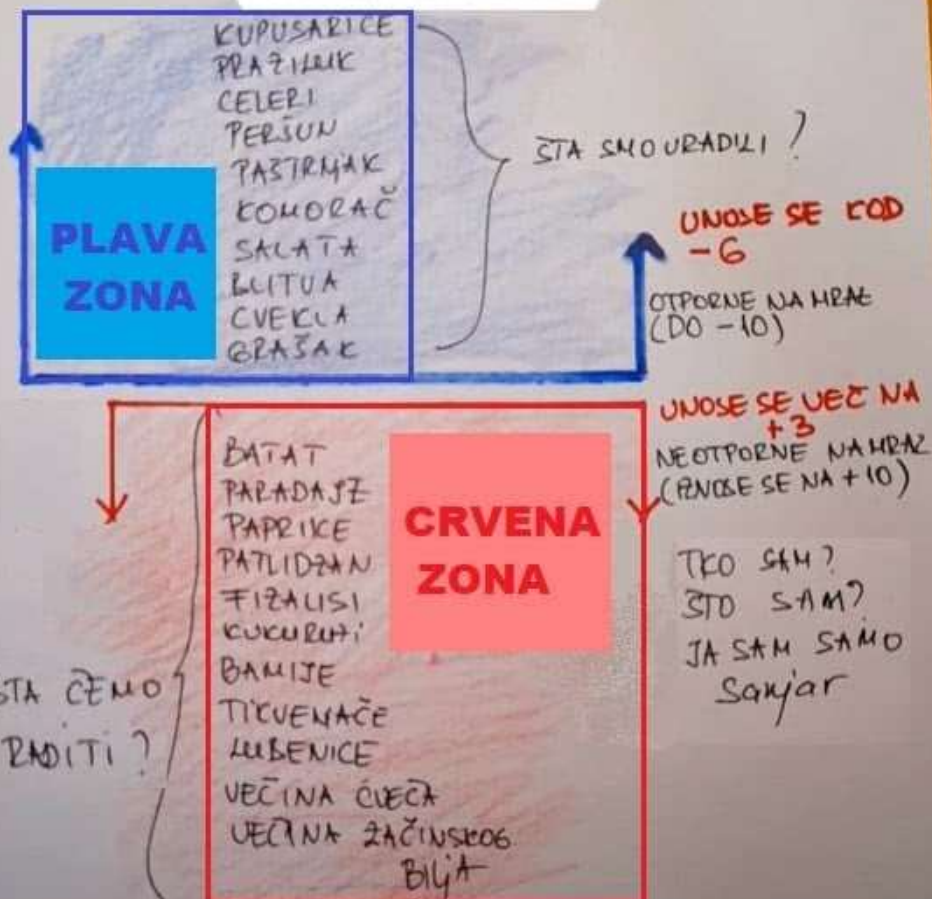 KUPUSARICE
PRAZILUK
CELERI
PERŠUN
PAŠTRNJAK
KOMORAČ
SALATA
BLITVA
CVEKLA
GRAŠAK
PLAVA
ZONA
ŠTA SMO URADILI?
UNOSE SE KOD
-6
OTPORNE NA MRAZ
(DO -10)
UNOSE SE VEĆ NA
+3
NEOTPORNE NA MRAZ
(IZNOSE SE NA +10)
BATAT
PARADAJZ
PAPRIKE
PATLIDŽAN
FIZALISI
KUKURUZI
BAMIJE
TIKVENAČE
LUBENICE
VEĆINA CVEĆA
VEĆINA ZAČINSKOG
BILJA
CRVENA
ZONA
ŠTA ĆEMO
RADITI?
TKO SAM?
ŠTO SAM?
JA SAM SAMO
Sanjar